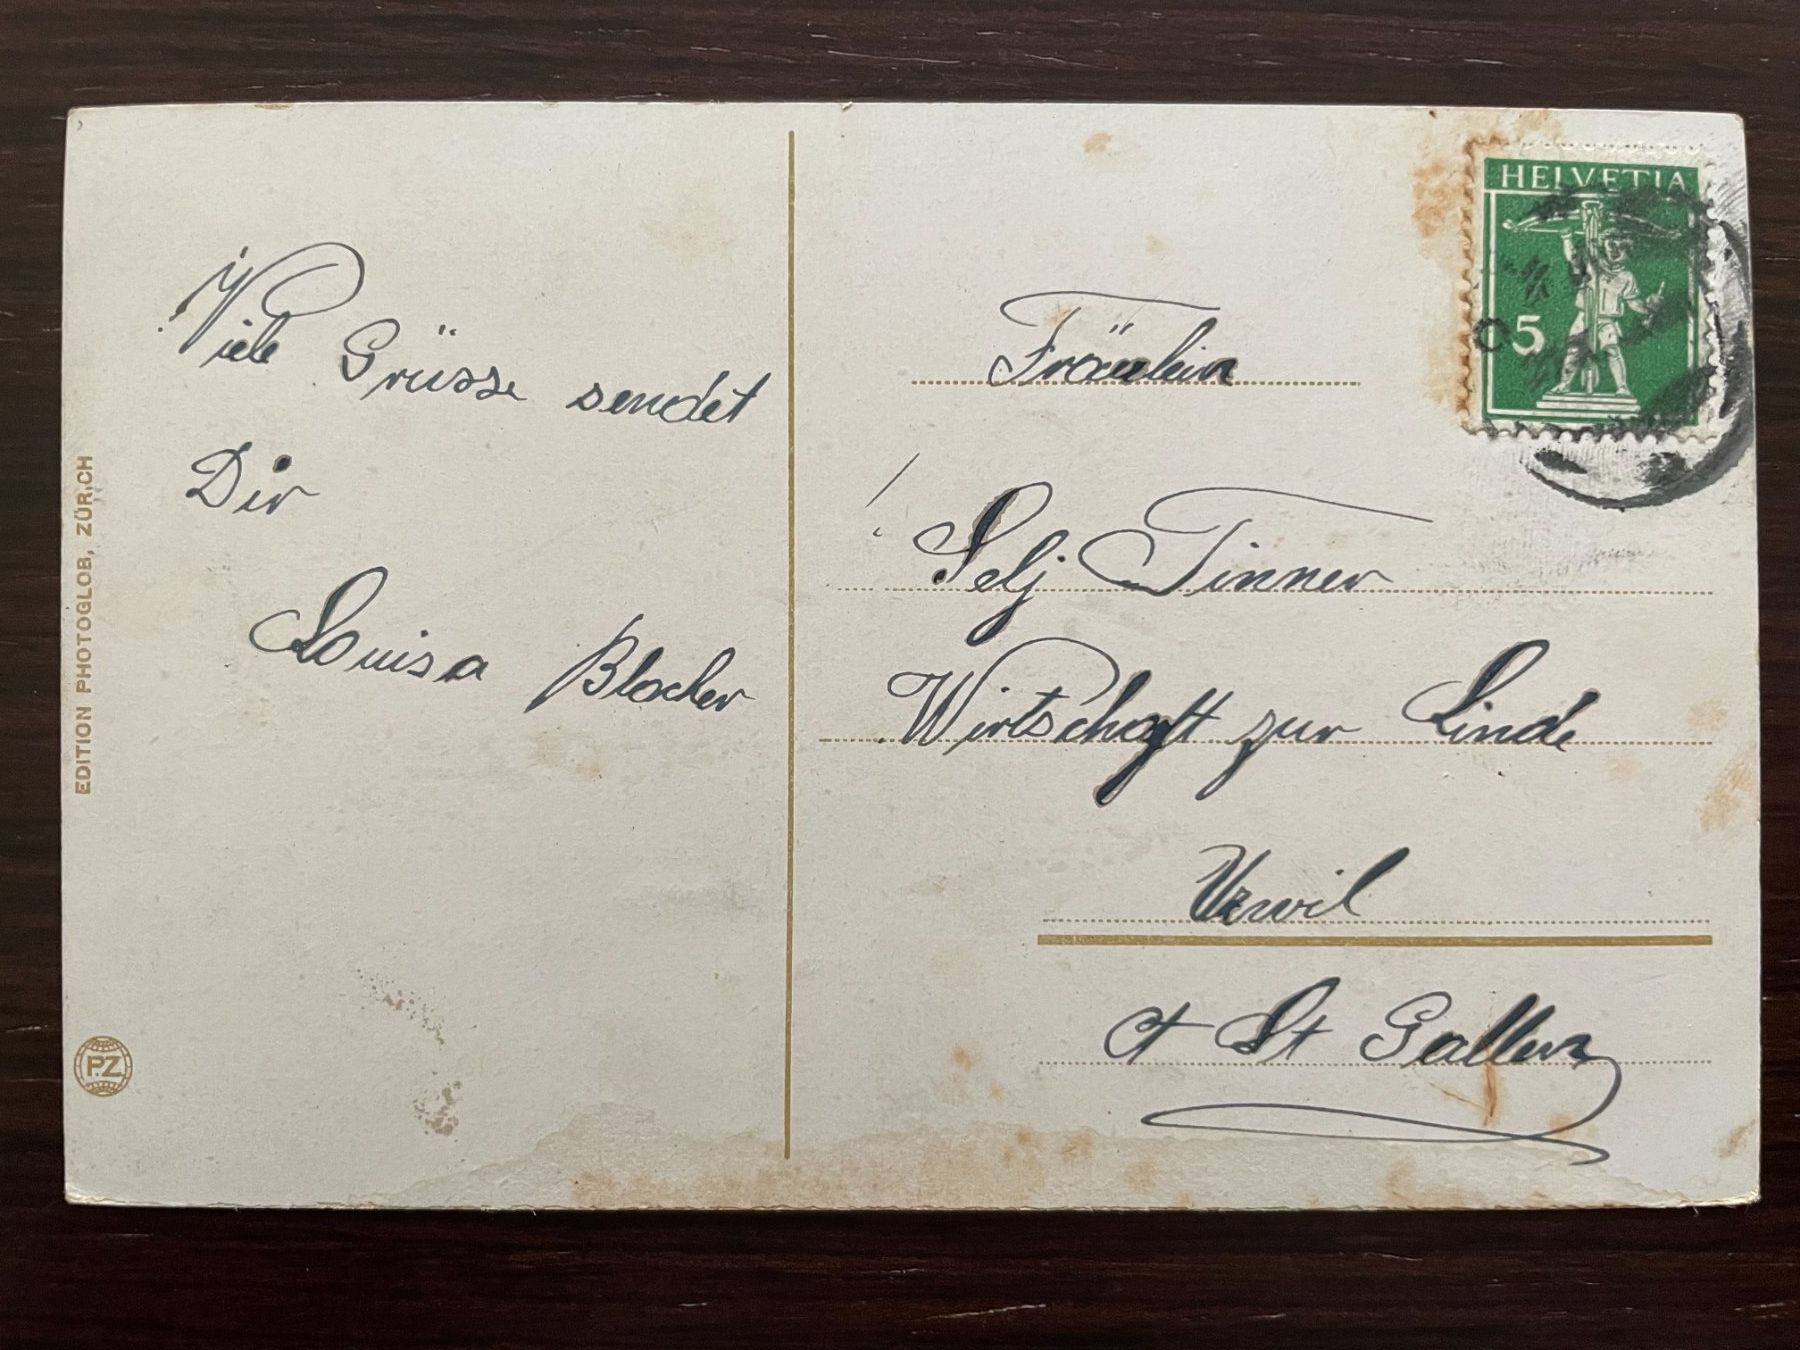 Viele Grüsse sendet
Dir
Louisa Blocher
EDITION PHOTOGLOB, ZÜRICH
P.Z.
HELVETIA
5
Fräulein
Selj Tinner
Wirtschaft zur Linde
Urwil
Ct St Gallen